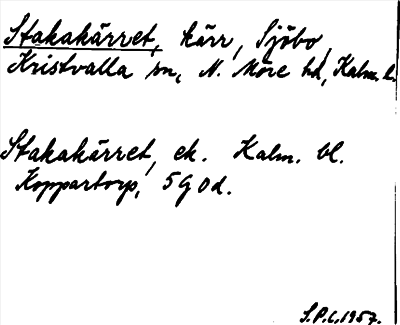 Stakakärret, kärr, Sjöbo,
Kristvalla sn, N. Möre hd, Kalm. l.
Stakakärret, ek. Kalm. bl.
Koppartorp, 5 G 0 d.
S.P.C. 1957.